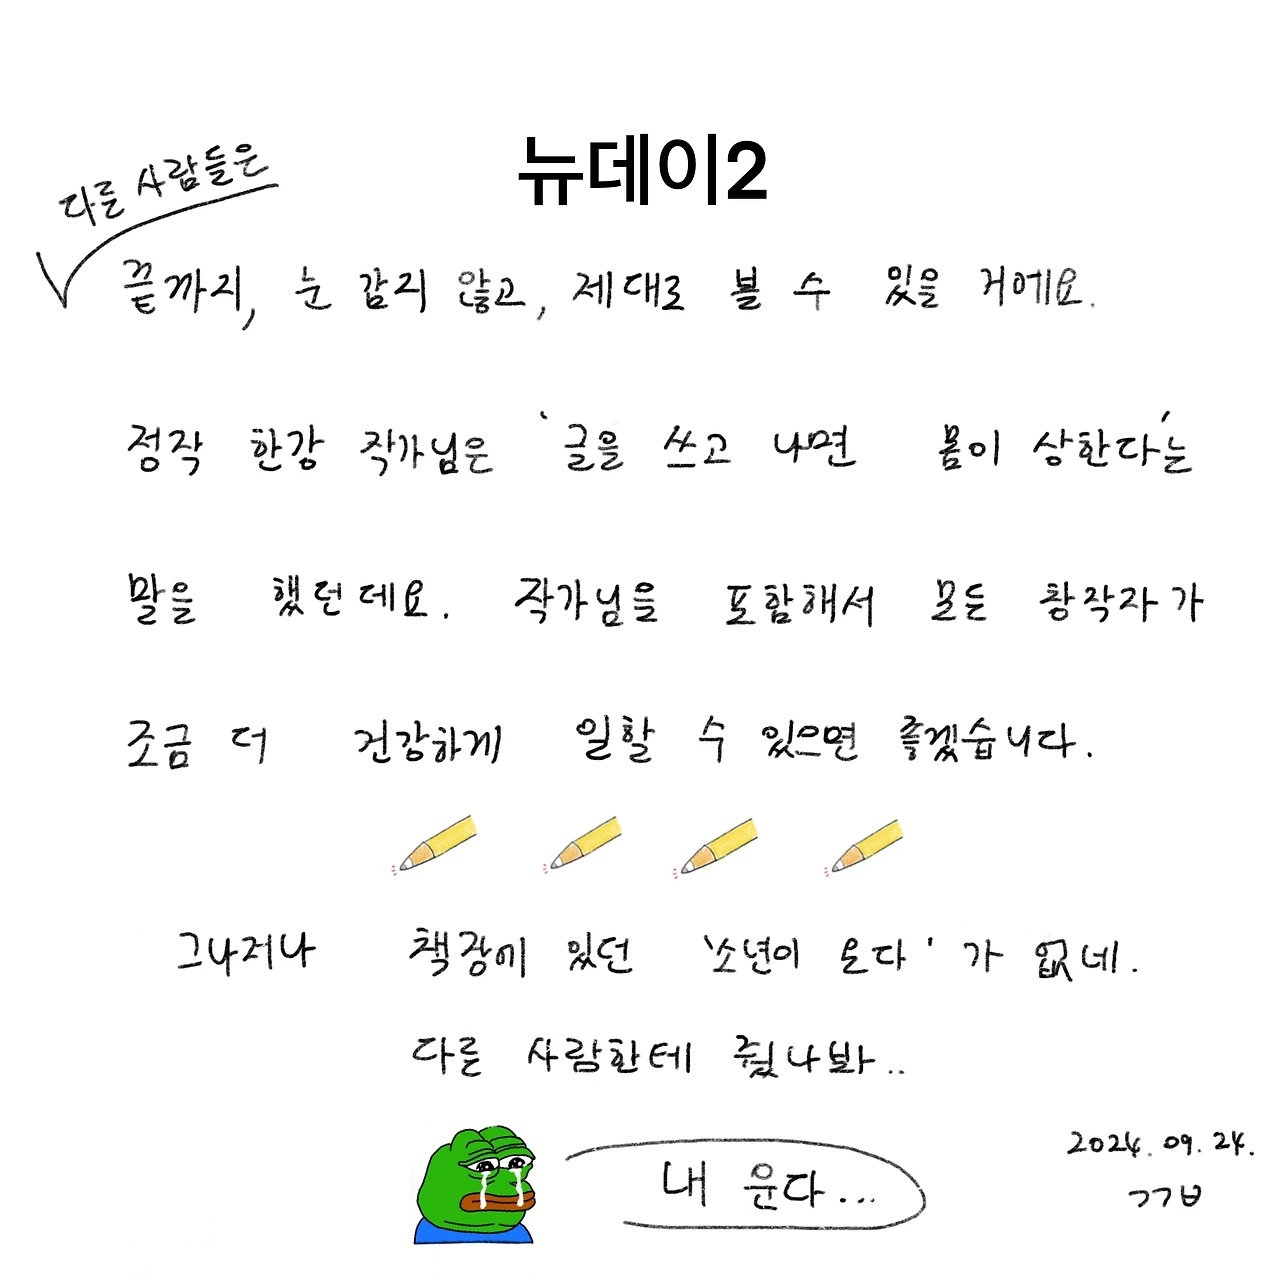 뉴데이2
다른 사람들은
끝까지, 눈 감지 않고, 제대로 볼 수 있을 거에요.
정작 한강 작가님은 '글을 쓰고 나면 몸이 상한다'는
말을 했던데요. 작가님을 포함해서 모든 창작자가
조금 더 건강하게 일할 수 있으면 좋겠습니다.
그나저나 책장에 있던 '소년이 온다'가 없네.
다른 사람한테 줬나봐..
내 운다...
2024. 09. 24.
ㄱㄱㅂ